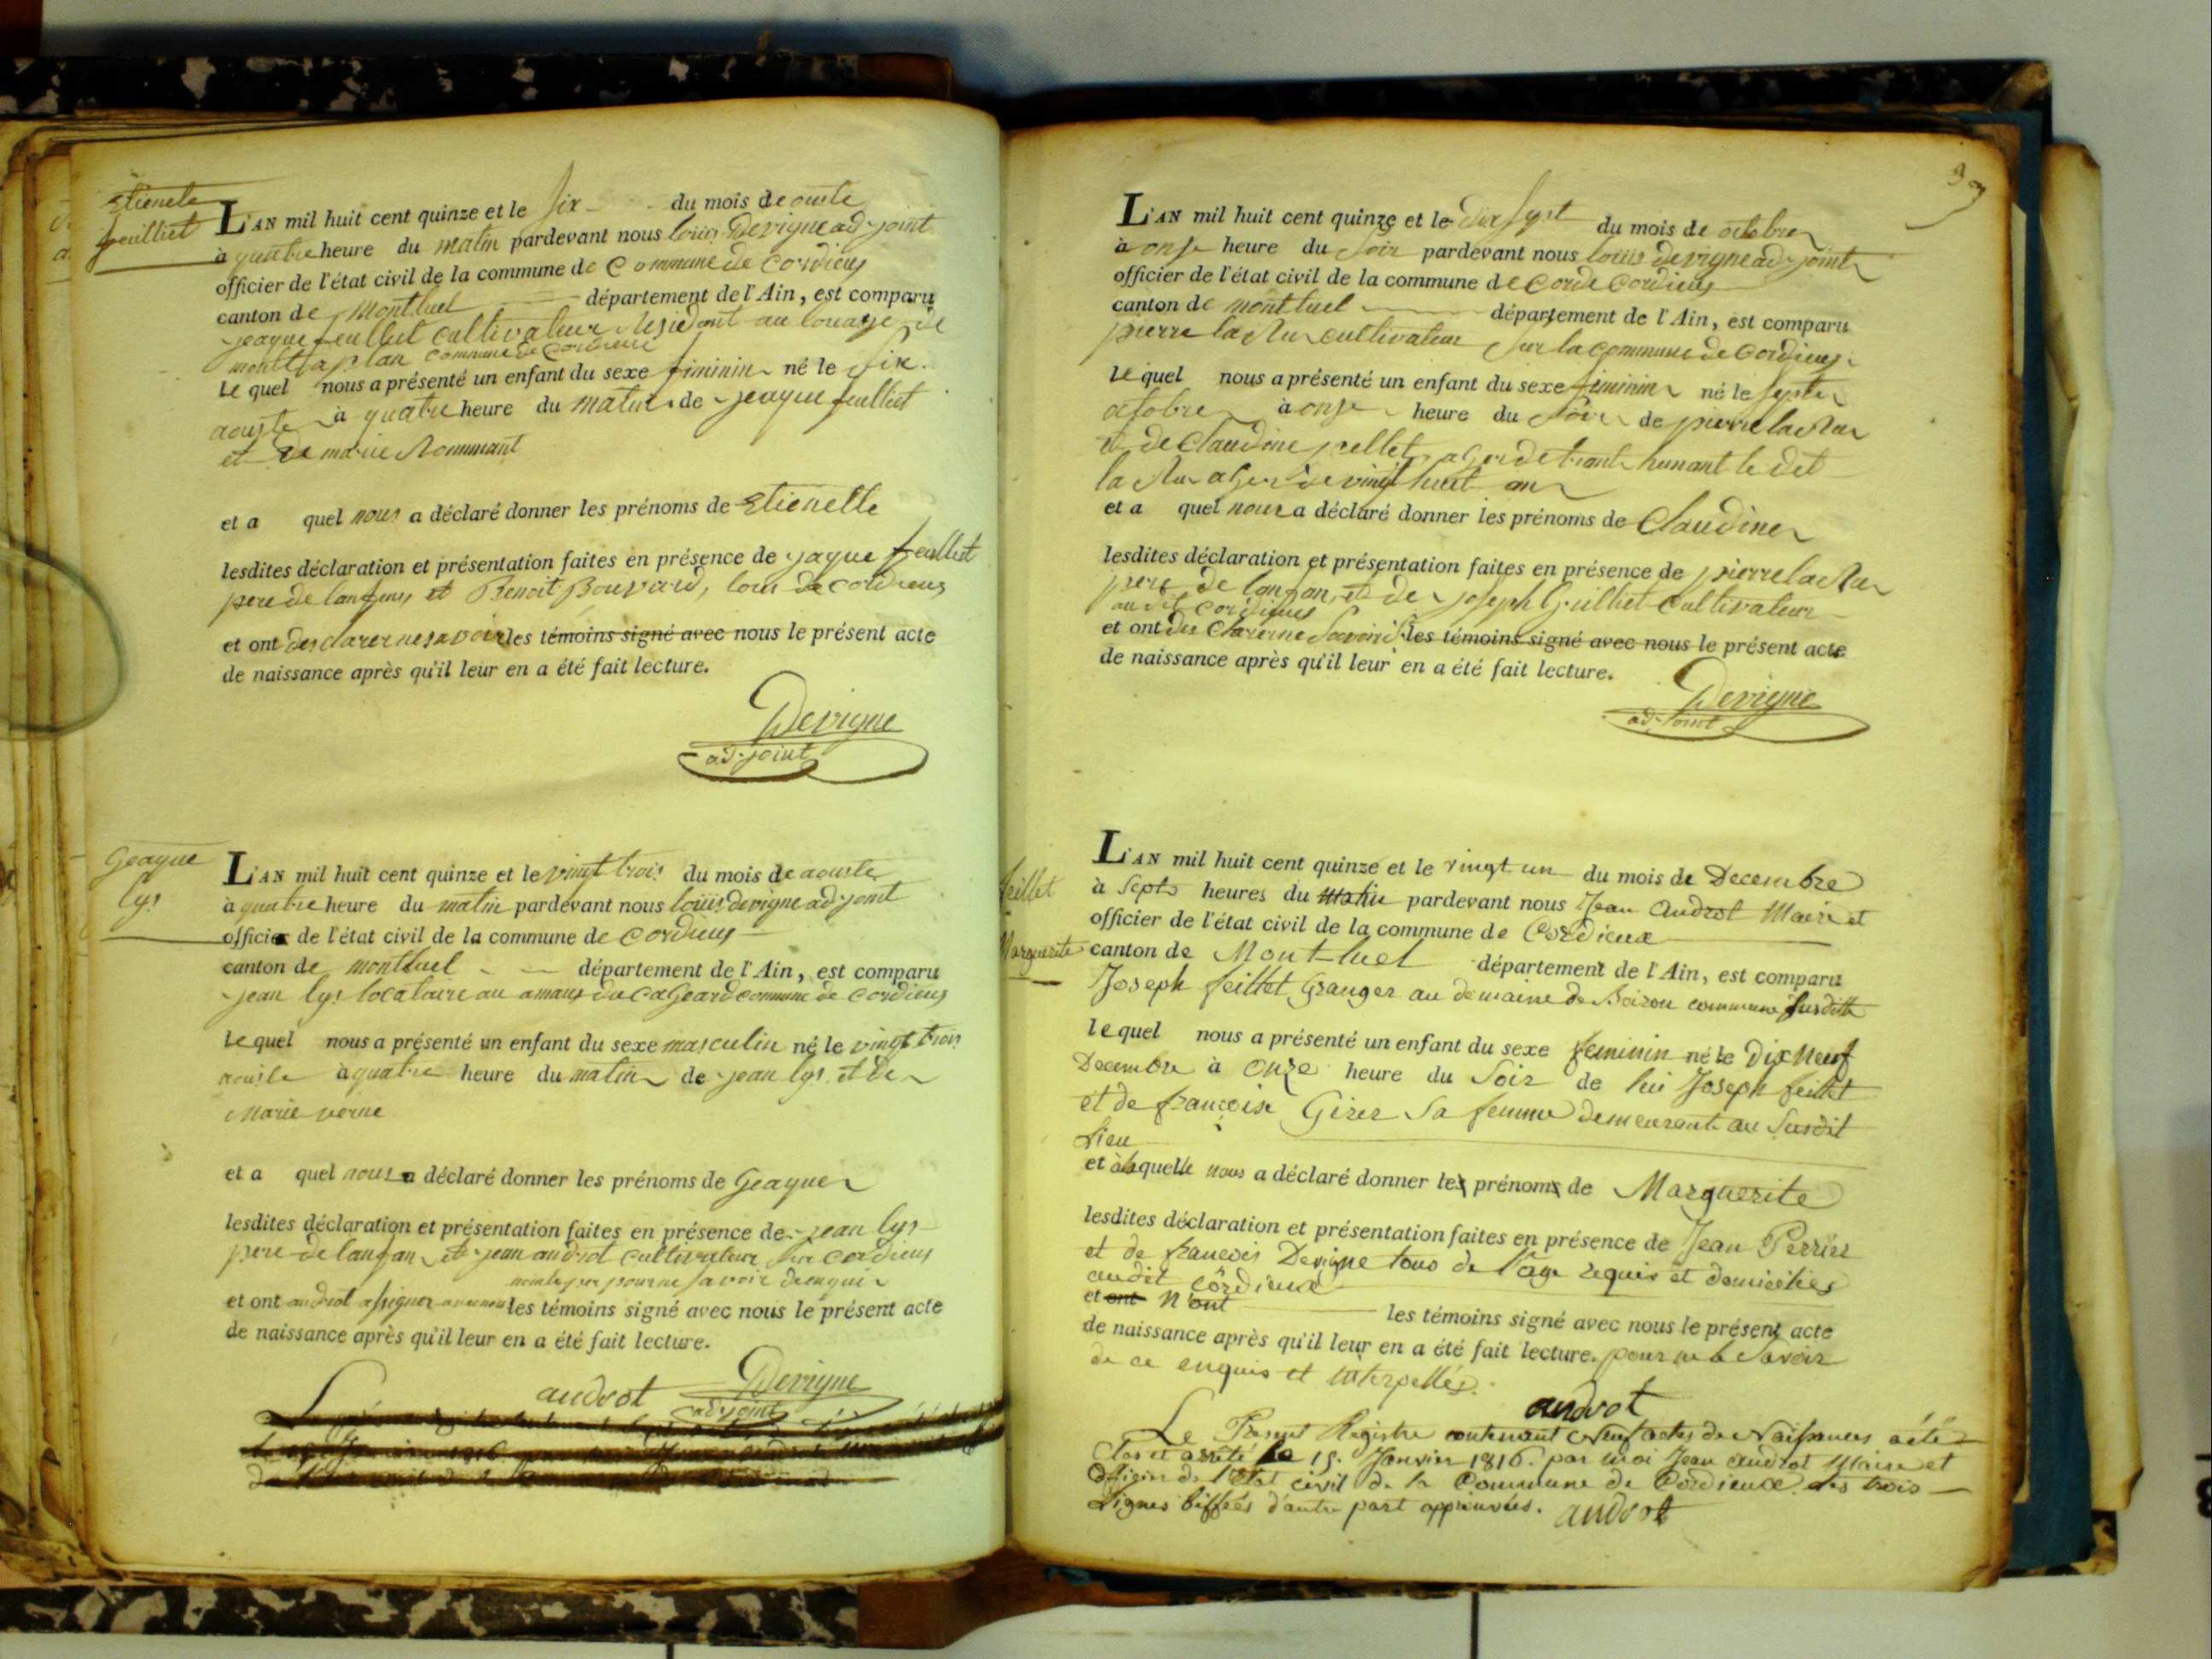 Etienete
feuilliet
L'AN mil huit cent quinze et le six du mois de ouste
à quatre heure du matin pardevant nous louis Devigne ad-joint
officier de l'état civil de la commune de Commune de Cordieus
canton de Montluel département de l'Ain, est comparu
jeaque feulliet cultivateur Residant au
montaplan Commune de Cordieux
Le quel nous a présenté un enfant du sexe fiminin né le six
aouste à quatre heure du matin de jeaque feulliet
et de marie Rommant
et a quel nous a déclaré donner les prénoms de Etienette
lesdites déclaration et présentation faites en présence de jaque feulliet
pere de lanfans et Benoit Bouvard, tous de cordieus
et ont desclarer ne savoir les témoins signé avec nous le présent acte
de naissance après qu'il leur en a été fait lecture.
Devigne
ad-joint
Geaque
lys
L'AN mil huit cent quinze et le vingt trois du mois de aouste
à quatre heure du matin pardevant nous louis devigne ad-joint
officier de l'état civil de la commune de Cordieus
canton de montluel département de l'Ain, est comparu
jean lys locataire au amaus du Cageard commune de Cordieus
Le quel nous a présenté un enfant du sexe masculin né le vingt trois
aouste à quatre heure du matin de jean lys et de
Marie verne
et a quel nous a déclaré donner les prénoms de Geaque
lesdites déclaration et présentation faites en présence de jean lys
pere de lanfan et jean androt cultivateur sur cordieus
non le per pour ne savoir de enquis
et ont androt assigner avec nous les témoins signé avec nous le présent acte
de naissance après qu'il leur en a été fait lecture.
androt Devigne
ad-joint
L'AN mil huit cent quinze et le dix sept du mois de octobre
à onse heure du soir pardevant nous louis devigne ad-joint
officier de l'état civil de la commune de Corde Cordieus
canton de montluel département de l'Ain, est comparu
pierre la Rue cultivateur sur la commune de Cordieus
Le quel nous a présenté un enfant du sexe fiminin né le septe
octobre à onse heure du soir de pierre la Rue
et de Claudine pellet ager de trante hunant le dit
la Rue ager de vingt huit an
et a quel nous a déclaré donner les prénoms de Claudine
lesdites déclaration et présentation faites en présence de pierre la Rue
pere de lanfan et de joseph Guilliet cultivateur
au dit cordieus
et ont des clarer ne savoir les témoins signé avec nous le présent acte
de naissance après qu'il leur en a été fait lecture.
Devigne
ad-joint
feillet
Marguerite
L'AN mil huit cent quinze et le vingt un du mois de Decembre
à Septs heures du matin pardevant nous Jean Androt Maire et
officier de l'état civil de la commune de Cordieux
canton de Mont-luel département de l'Ain, est comparu
Joseph feillet Granger au domaine de Boizon commune susditte
le quel nous a présenté un enfant du sexe feminin né le Dix Neuf
Decembre à Onze heure du Soir de lui Joseph feillet
et de françoise Girer Sa femme demeurant au Susdit
Lieu
et à laquelle nous a déclaré donner les prénoms de Marguerite
lesdites déclaration et présentation faites en présence de Jean Perrier
et de francois Devigne tous de l'age requis et domiciliés
audit Cordieux
et ont n'ont les témoins signé avec nous le présent acte
de naissance après qu'il leur en a été fait lecture. pour ne le Savoir
de ce enquis et interpellés.
androt
Le Present Registre contenant neuf actes de Naissances a été
Clos et arrêté le 15. Janvier 1816. par moi Jean Androt Maire et
Officier de l'état civil de la Commune de Cordieux les trois
Lignes biffées d'autre part approuvées. androt